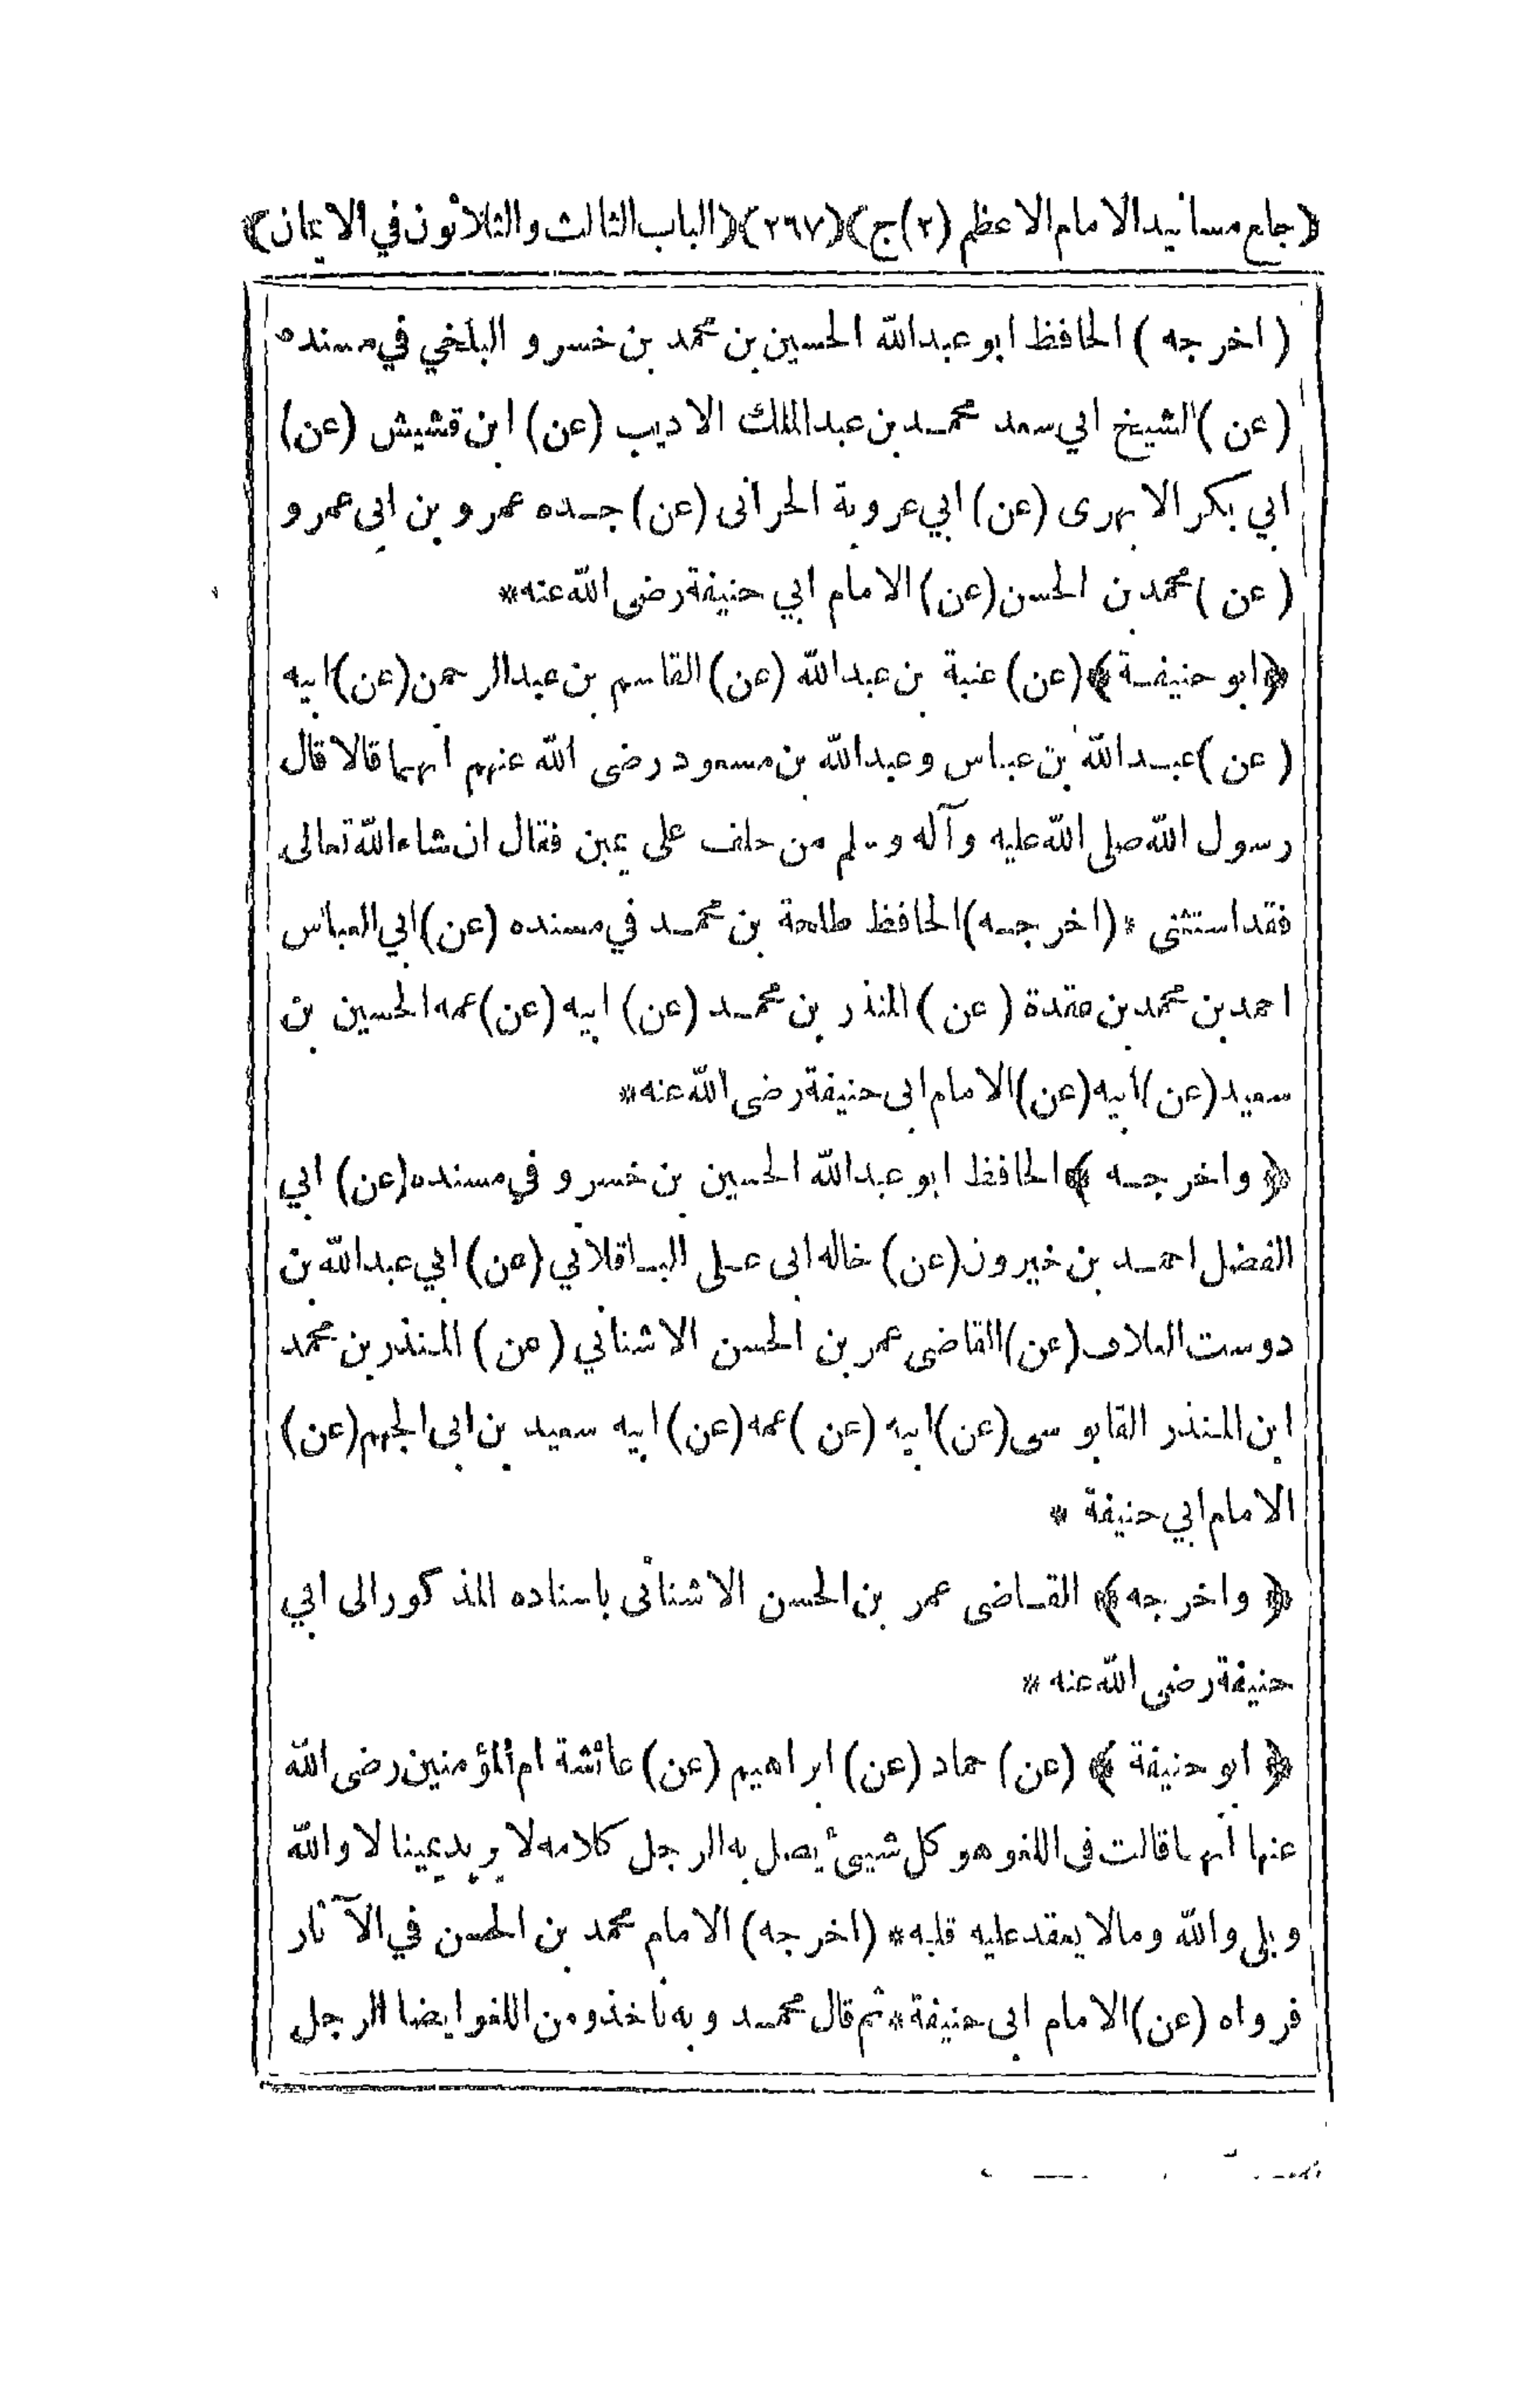 ﴿جامع مسانيد الامام الاعظم (٢) ج﴾ ﴿٢٦٧﴾ ﴿الباب الثالث والثلاثون في الايمان﴾
( اخرجه ) الحافظ ابو عبد الله الحسين بن محمد بن خسرو البلخي في مسنده
( عن ) الشيخ ابي سعد محمد بن عبد الملك الاديب (عن) ابن قشيش (عن)
ابي بكر الابهرى (عن) ابي عروبة الحرانى (عن) جده عمرو بن ابى عمرو
( عن ) محمد بن الحسن (عن) الامام ابي حنيفة رضى الله عنه *
﴿ابو حنيفة﴾ (عن) عتبة بن عبد الله (عن) القاسم بن عبد الرحمن (عن) ابيه
( عن ) عبد الله بن عباس وعبد الله بن مسعود رضى الله عنهم انهما قالا قال
رسول الله صلى الله عليه وآله وسلم من حلف على يمين فقال ان شاء الله تعالى
فقد استثنى * (اخرجه) الحافظ طلحة بن محمد في مسنده (عن) ابي العباس
احمد بن محمد بن عقدة ( عن ) المنذر بن محمد (عن) ابيه (عن) عمه الحسين بن
سعيد (عن) ابيه (عن) الامام ابى حنيفة رضى الله عنه *
﴿ واخرجه ﴾ الحافظ ابو عبد الله الحسين بن خسرو في مسنده (عن) ابي
الفضل احمد بن خيرون (عن) خاله ابى على الباقلاني (عن) ابي عبد الله بن
دوست العلاف (عن) القاضى عمر بن الحسن الاشناني ( عن ) المنذر بن محمد
ابن المنذر القابوسى (عن) ابيه (عن ) عمه (عن) ابيه سعيد بن ابى الجهم (عن)
الامام ابي حنيفة *
﴿ واخرجه ﴾ القاضى عمر بن الحسن الاشنانى باسناده المذكور الى ابي
حنيفة رضى الله عنه *
﴿ ابو حنيفة ﴾ (عن) حماد (عن) ابراهيم (عن) عائشة ام المؤمنين رضى الله
عنها انها قالت فى اللغو هو كل شيئ يصل به الرجل كلامه لا يريد يمينا لا والله
وبلى والله ومالا يعقد عليه قلبه * (اخرجه) الامام محمد بن الحسن في الآثار
فرواه (عن) الامام ابى حنيفة * ثم قال محمد وبه ناخذ ومن اللغو ايضا الرجل